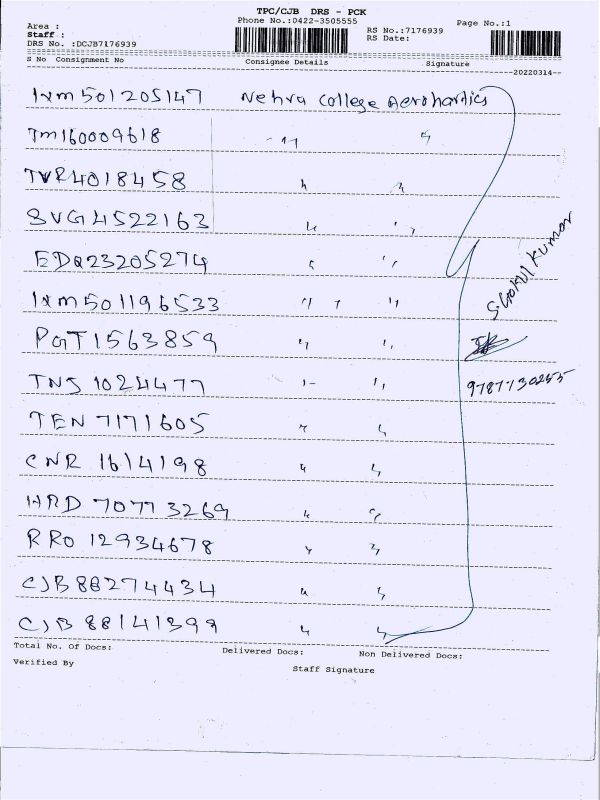 TPC/CJB DRS - PCK
Area : Phone No.:0422-3505555 Page No.:1
Staff : RS No.:7176939
DRS No. :DCJB7176939 RS Date:
S No Consignment No Consignee Details Signature
20220314
IXM501205147 Nehru College Aerohartics
TM160009618 " "
TVR4018458 " "
SVG4522163 " "
EDQ23205274 " "
IXM501196533 " "
PGT1563859 " "
TNJ 1024477 " "
TEN 7171605 " "
CNR 1614198 " "
HRD 70773269 " "
RRO 12934678 " "
CJB88274434 " "
CJB 88141399 " "
S.Gokul Kumar
9787730255
Total No. Of Docs: Delivered Docs: Non Delivered Docs:
Verified By Staff Signature